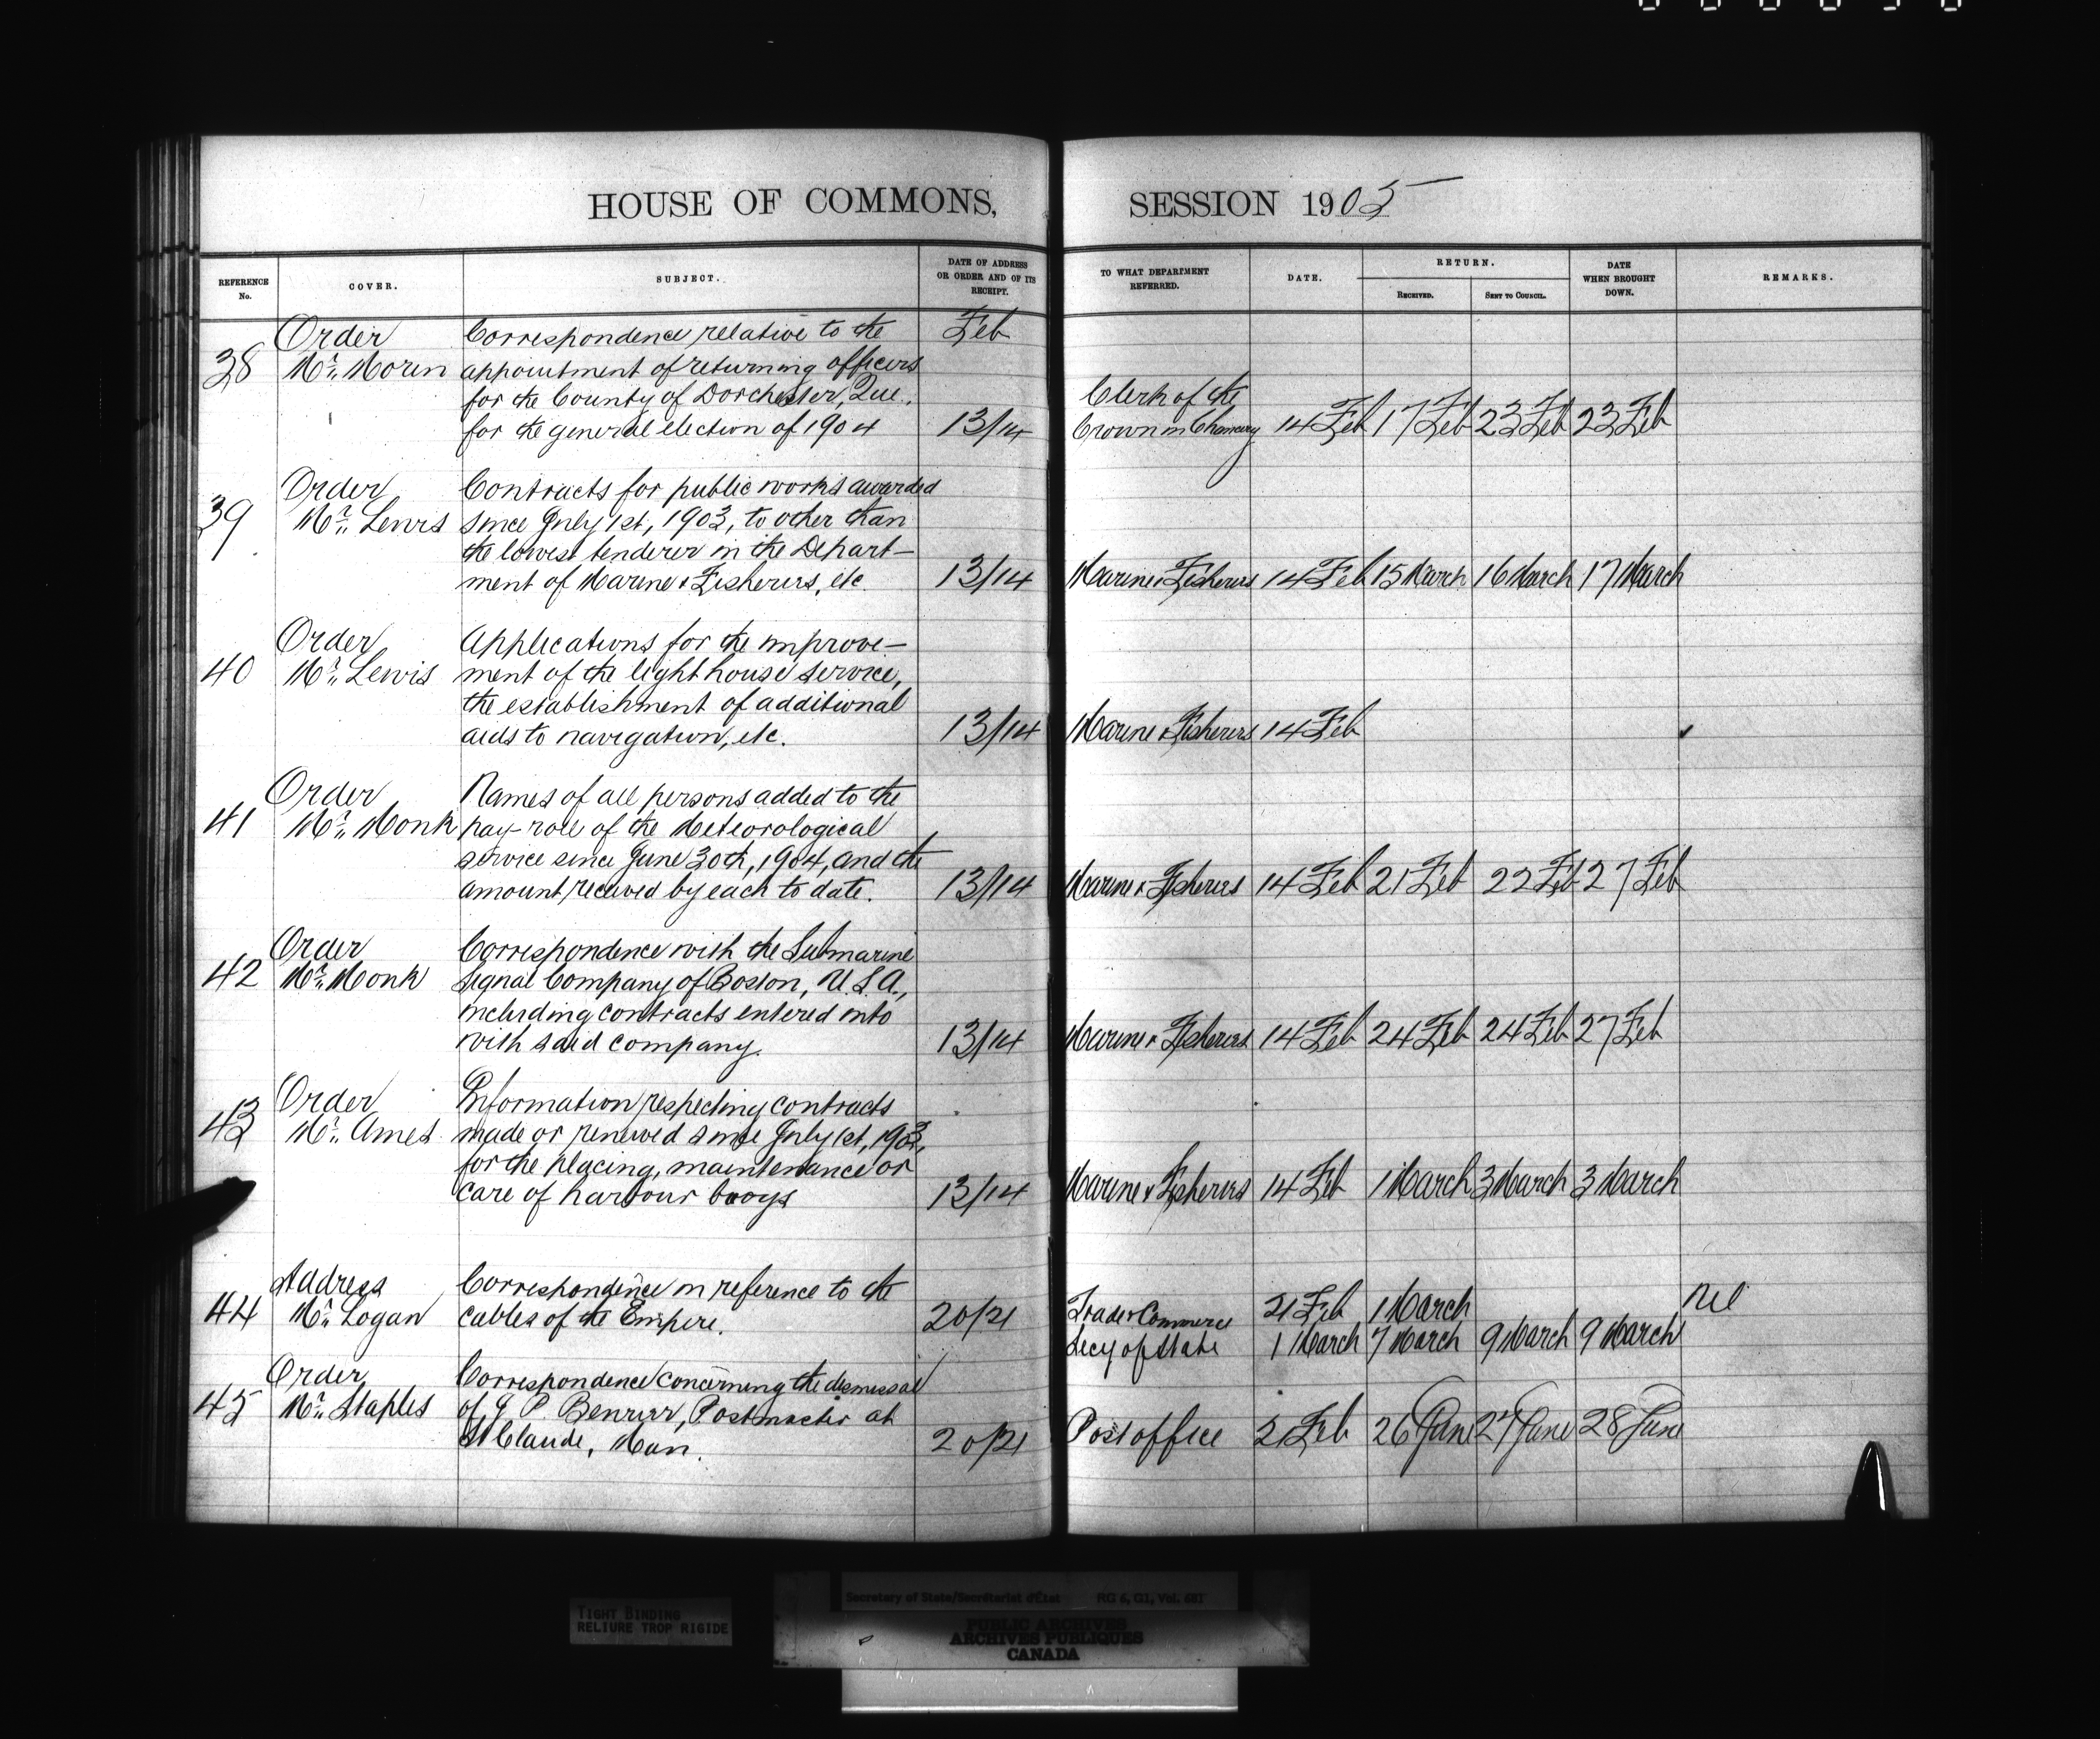 HOUSE OF COMMONS, SESSION 1905
REFERENCE No.
COVER.
SUBJECT.
DATE OF ADDRESS OR ORDER AND OF ITS RECEIPT.
TO WHAT DEPARTMENT REFERRED.
DATE.
RETURN.
RECEIVED.
SENT TO COUNCIL.
DATE WHEN BROUGHT DOWN.
REMARKS.
Order Correspondence relative to the Feb
38 Mr. Morin appointment of returning officers
for the County of Dorchester, Que. Clerk of the
for the general election of 1904 13/14 Crown in Chancery 14 Feb 17 Feb 23 Feb 23 Feb
Order Contracts for public works awarded
39 Mr. Lewis since July 1st, 1903, to other than
the lowest tenderer in the Depart-
ment of Marine & Fisheries, etc. 13/14 Marine & Fisheries 14 Feb 15 March 16 March 17 March
Order Applications for the improve-
40 Mr. Lewis ment of the light house service,
the establishment of additional
aids to navigation, etc. 13/14 Marine & Fisheries 14 Feb
Order Names of all persons added to the
41 Mr. Monk pay-roll of the Meteorological
service since June 30th, 1904, and the
amount received by each to date. 13/14 Marine & Fisheries 14 Feb 21 Feb 22 Feb 27 Feb
Order Correspondence with the Submarine
42 Mr. Monk Signal Company of Boston, U.S.A.,
including contracts entered into
with said company. 13/14 Marine & Fisheries 14 Feb 24 Feb 24 Feb 27 Feb
Order Information respecting contracts
43 Mr. Ames made or renewed since July 1st, 1903,
for the placing, maintenance or
care of harbour buoys 13/14 Marine & Fisheries 14 Feb 1 March 3 March 3 March
Address Correspondence in reference to the
44 Mr. Logan cables of the Empire. 20/21 Trade & Commerce 21 Feb 1 March Nil
Secy of State 1 March 7 March 9 March 9 March
Order Correspondence concerning the dismissal
45 Mr. Staples of J. P. Postmaster at
St Claude, Man. 20/21 Post office 21 Feb 26 June 27 June 28 June
TIGHT BINDING
RELIURE TROP RIGIDE
Secretary of State/Secrétariat d'État RG 6, G1, Vol. 681
PUBLIC ARCHIVES
ARCHIVES PUBLIQUES
CANADA